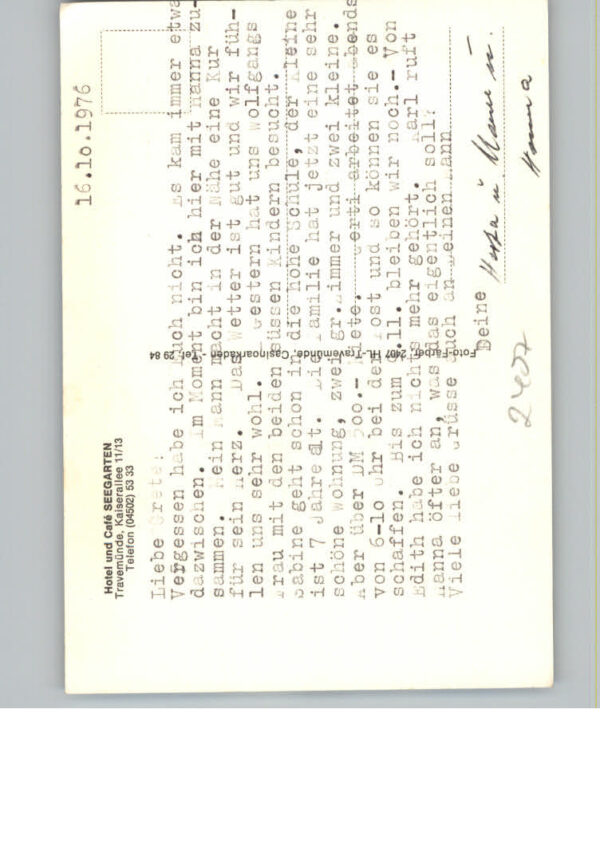 Hotel und Café SEEGARTEN
Travemünde, Kaiserallee 11/13
Telefon (04502) 53 33
16.1o.1976
Liebe Grete!
Vergessen habe ich Dich nicht. Es kam immer etwa
dazwischen. Im Moment bin ich hier mit Hanna zu-
sammen. Mein Mann macht in der Nähe eine Kur
für sein Herz. Das Wetter ist gut und wir füh-
len uns sehr wohl. Gestern hat uns Wolfgangs
Frau mit den beiden süssen Kindern besucht.
Sabine geht schon in die hohe Schule, der Kleine
ist 7 Jahre alt. Die Familie hat jetzt eine sehr
schöne Wohnung, zwei gr.Zimmer und zwei kleine.
Aber über DM 5oo.- Miete. Gerti arbeitet abends
von 6-1o Uhr bei der Post und so können sie es
schaffen. Bis zum bleiben wir noch.- Von
Edith habe ich nichts mehr gehört. Karl ruft
Hanna öfter an, was das eigentlich soll?
Viele liebe Grüsse auch an Deinen Mann
Deine
u Mann u.
Hanna
Foto-Färber, 2407 HL-Travemünde, Casinoarkaden - Tel. 29 84
2407